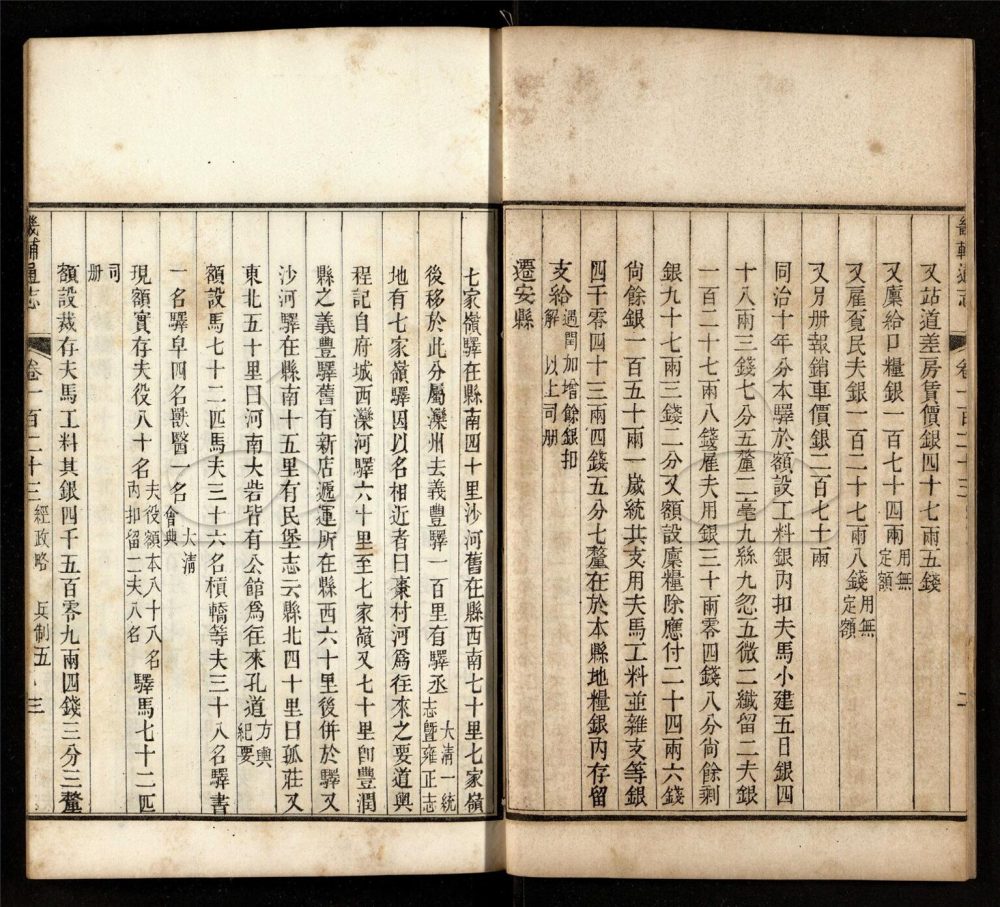 畿輔通志 卷一百二十三 二
又站道差房賃價銀四十七兩五錢
又廩給口糧銀一百七十四兩用無定額
又雇覓民夫銀一百二十七兩八錢用無定額
又另册報銷車價銀二百七十兩
同治十年分本驛於額設工料銀內扣夫馬小建五日銀四
十八兩三錢七分五釐二毫九絲九忽五微二纖留二夫銀
一百二十七兩八錢雇夫用銀三十兩零四錢八分尙餘剩
銀九十七兩三錢二分又額設廩糧除應付二十四兩六錢
尙餘銀一百五十兩一歲統共支用夫馬工料並雜支等銀
四千零四十三兩四錢五分七釐在於本縣地糧銀內存留
支給遇閏加增餘銀扣解 以上司册
遷安縣
七家嶺驛在縣南四十里沙河舊在縣西南七十里七家嶺
後移於此分屬灤州去義豐驛一百里有驛丞大淸一統志曁雍正志
地有七家嶺驛因以名相近者曰棗村河爲往來之要道輿
程記自府城西灤河驛六十里至七家嶺又七十里卽豐潤
縣之義豐驛舊有新店遞運所在縣西六十里後併於驛又
沙河驛在縣南十五里有民堡志云縣北四十里曰孤莊又
東北五十里曰河南大砦皆有公館爲往來孔道方輿紀要
額設馬七十二匹馬夫三十六名槓轎等夫三十八名驛書
一名驛皁四名獸醫一名大淸會典
現額實存夫役八十名夫役額本八十八名內扣留二夫八名 驛馬七十二匹
司册
額設裁存夫馬工料其銀四千五百零九兩四錢三分三釐
畿輔通志 卷一百二十三 經政略 兵制五 三